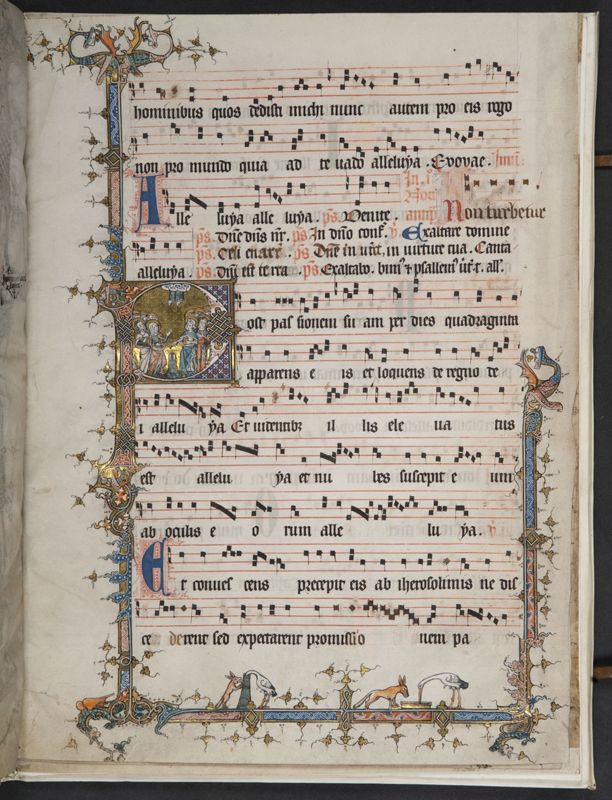 hominibus quos dedisti michi nunc autem pro eis rogo
non pro mundo quia ad te uado alleluya . Evovae .
Alle luya alle luya ps. Venite . Non turbetur
ps. Dne dns nr. ps In dno conf. Exaltare domine
ps. Celi enarr. ps Dne in uirt. in uirtute tua . Canta
alleluya ps. dni est terra . ps Exaltabo. bim9 & psallem9
Post pas sionem su am per dies quadraginta
apparens e is et loquens de regno de
i allelu ya Et uidentibz il lis ele ua tus
est allelu ya et nu bes suscepit e um
ab oculis e o rum alle lu ya.
Et conues cens precepit eis ab iherosolimis ne dis
ce derent sed expectarent promissio nem pa